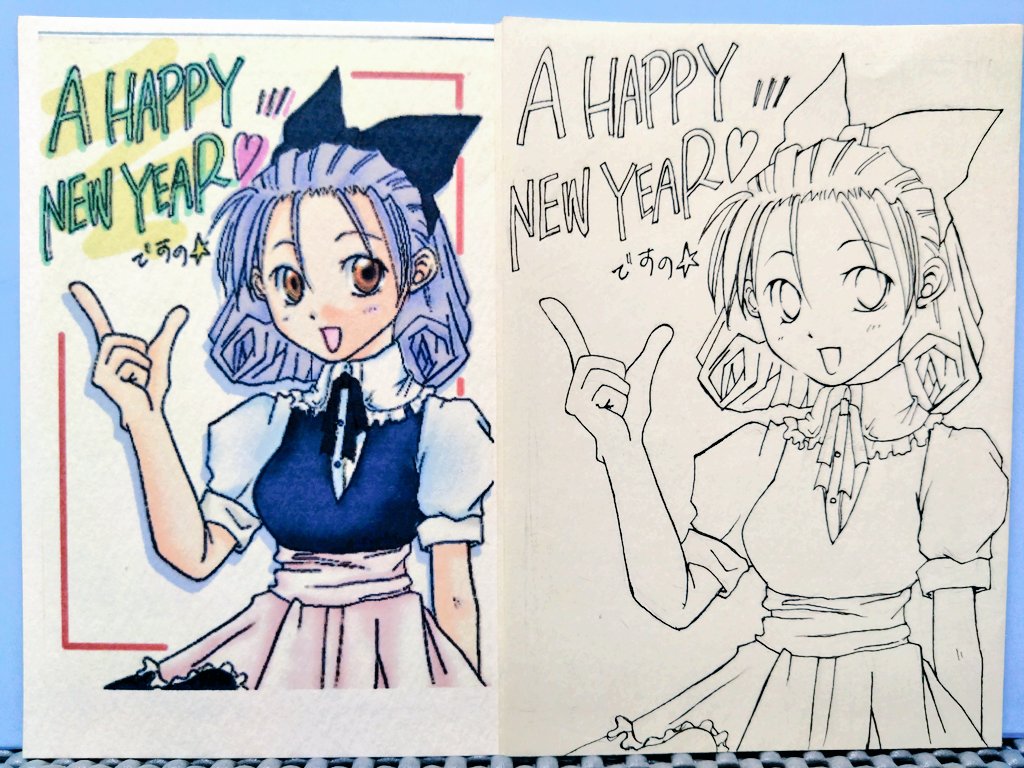 A HAPPY
NEW YEAR♡
ですの☆
A HAPPY
NEW YEAR♡
ですの☆